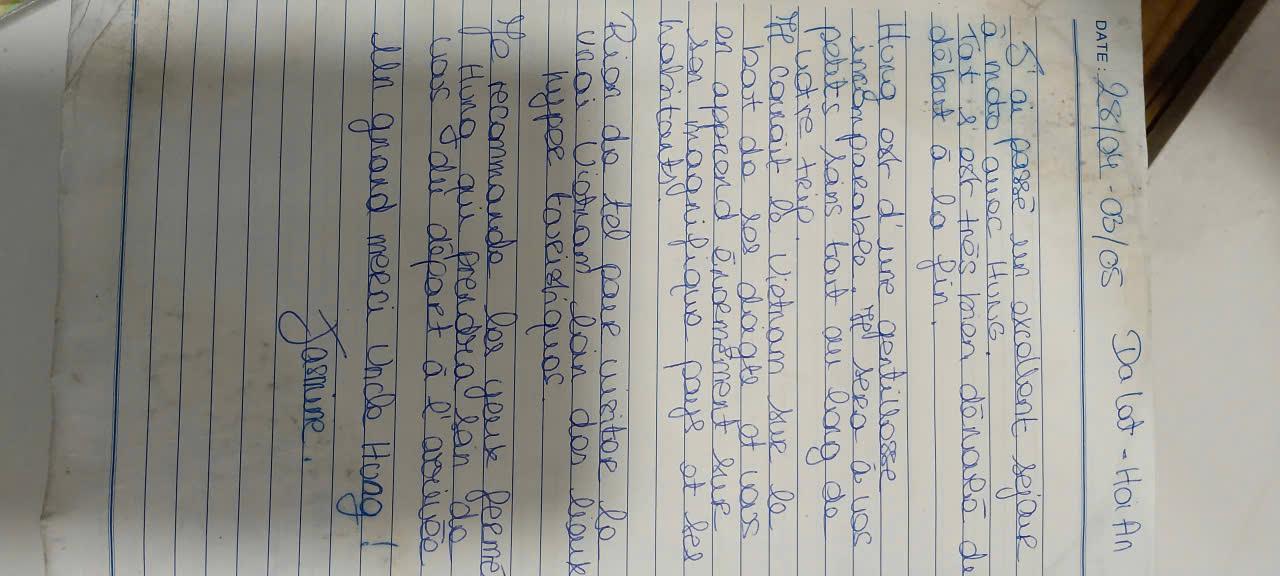 DATE: 28/04 - 03/05 Da Lat - Hoi An
J'ai passé un excellent séjour
à moto avec HUNG.
Tout s'est très bien déroulé de
début à la fin.
Hung est d'une gentillesse
incomparable. Il sera à vos
petits soins tout au long de
votre trip.
Il connait le Vietnam sur le
bout de ses doigts et vous
en apprend énormément sur
son magnifique pays et ses
habitants.
Rien de tel pour visiter le
vrai Vietnam loin des lieux
hyper touristiques.
Je recommande les yeux fermé
Hung qui prendra soin de
vous du départ à l'arrivée
Un grand merci Uncle Hung!
Jasmine.